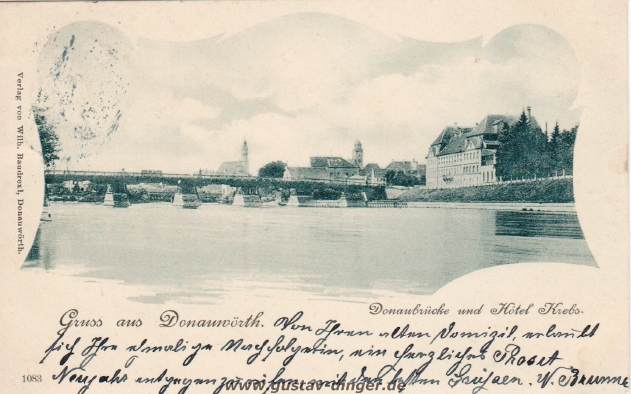 Verlag von Wilh. Baudrexl, Donauwörth.
Donaubrücke und Hôtel Krebs.
Gruss aus Donauwörth.
Von Ihren alten Domizil, erlaubt
sich Ihre ehmalige Nachfolgerin, ein herzliches Proset
Neujahr entgegenzurufen mit den besten Grüssen. N. Brunne
1083
www.gustav-dinger.de